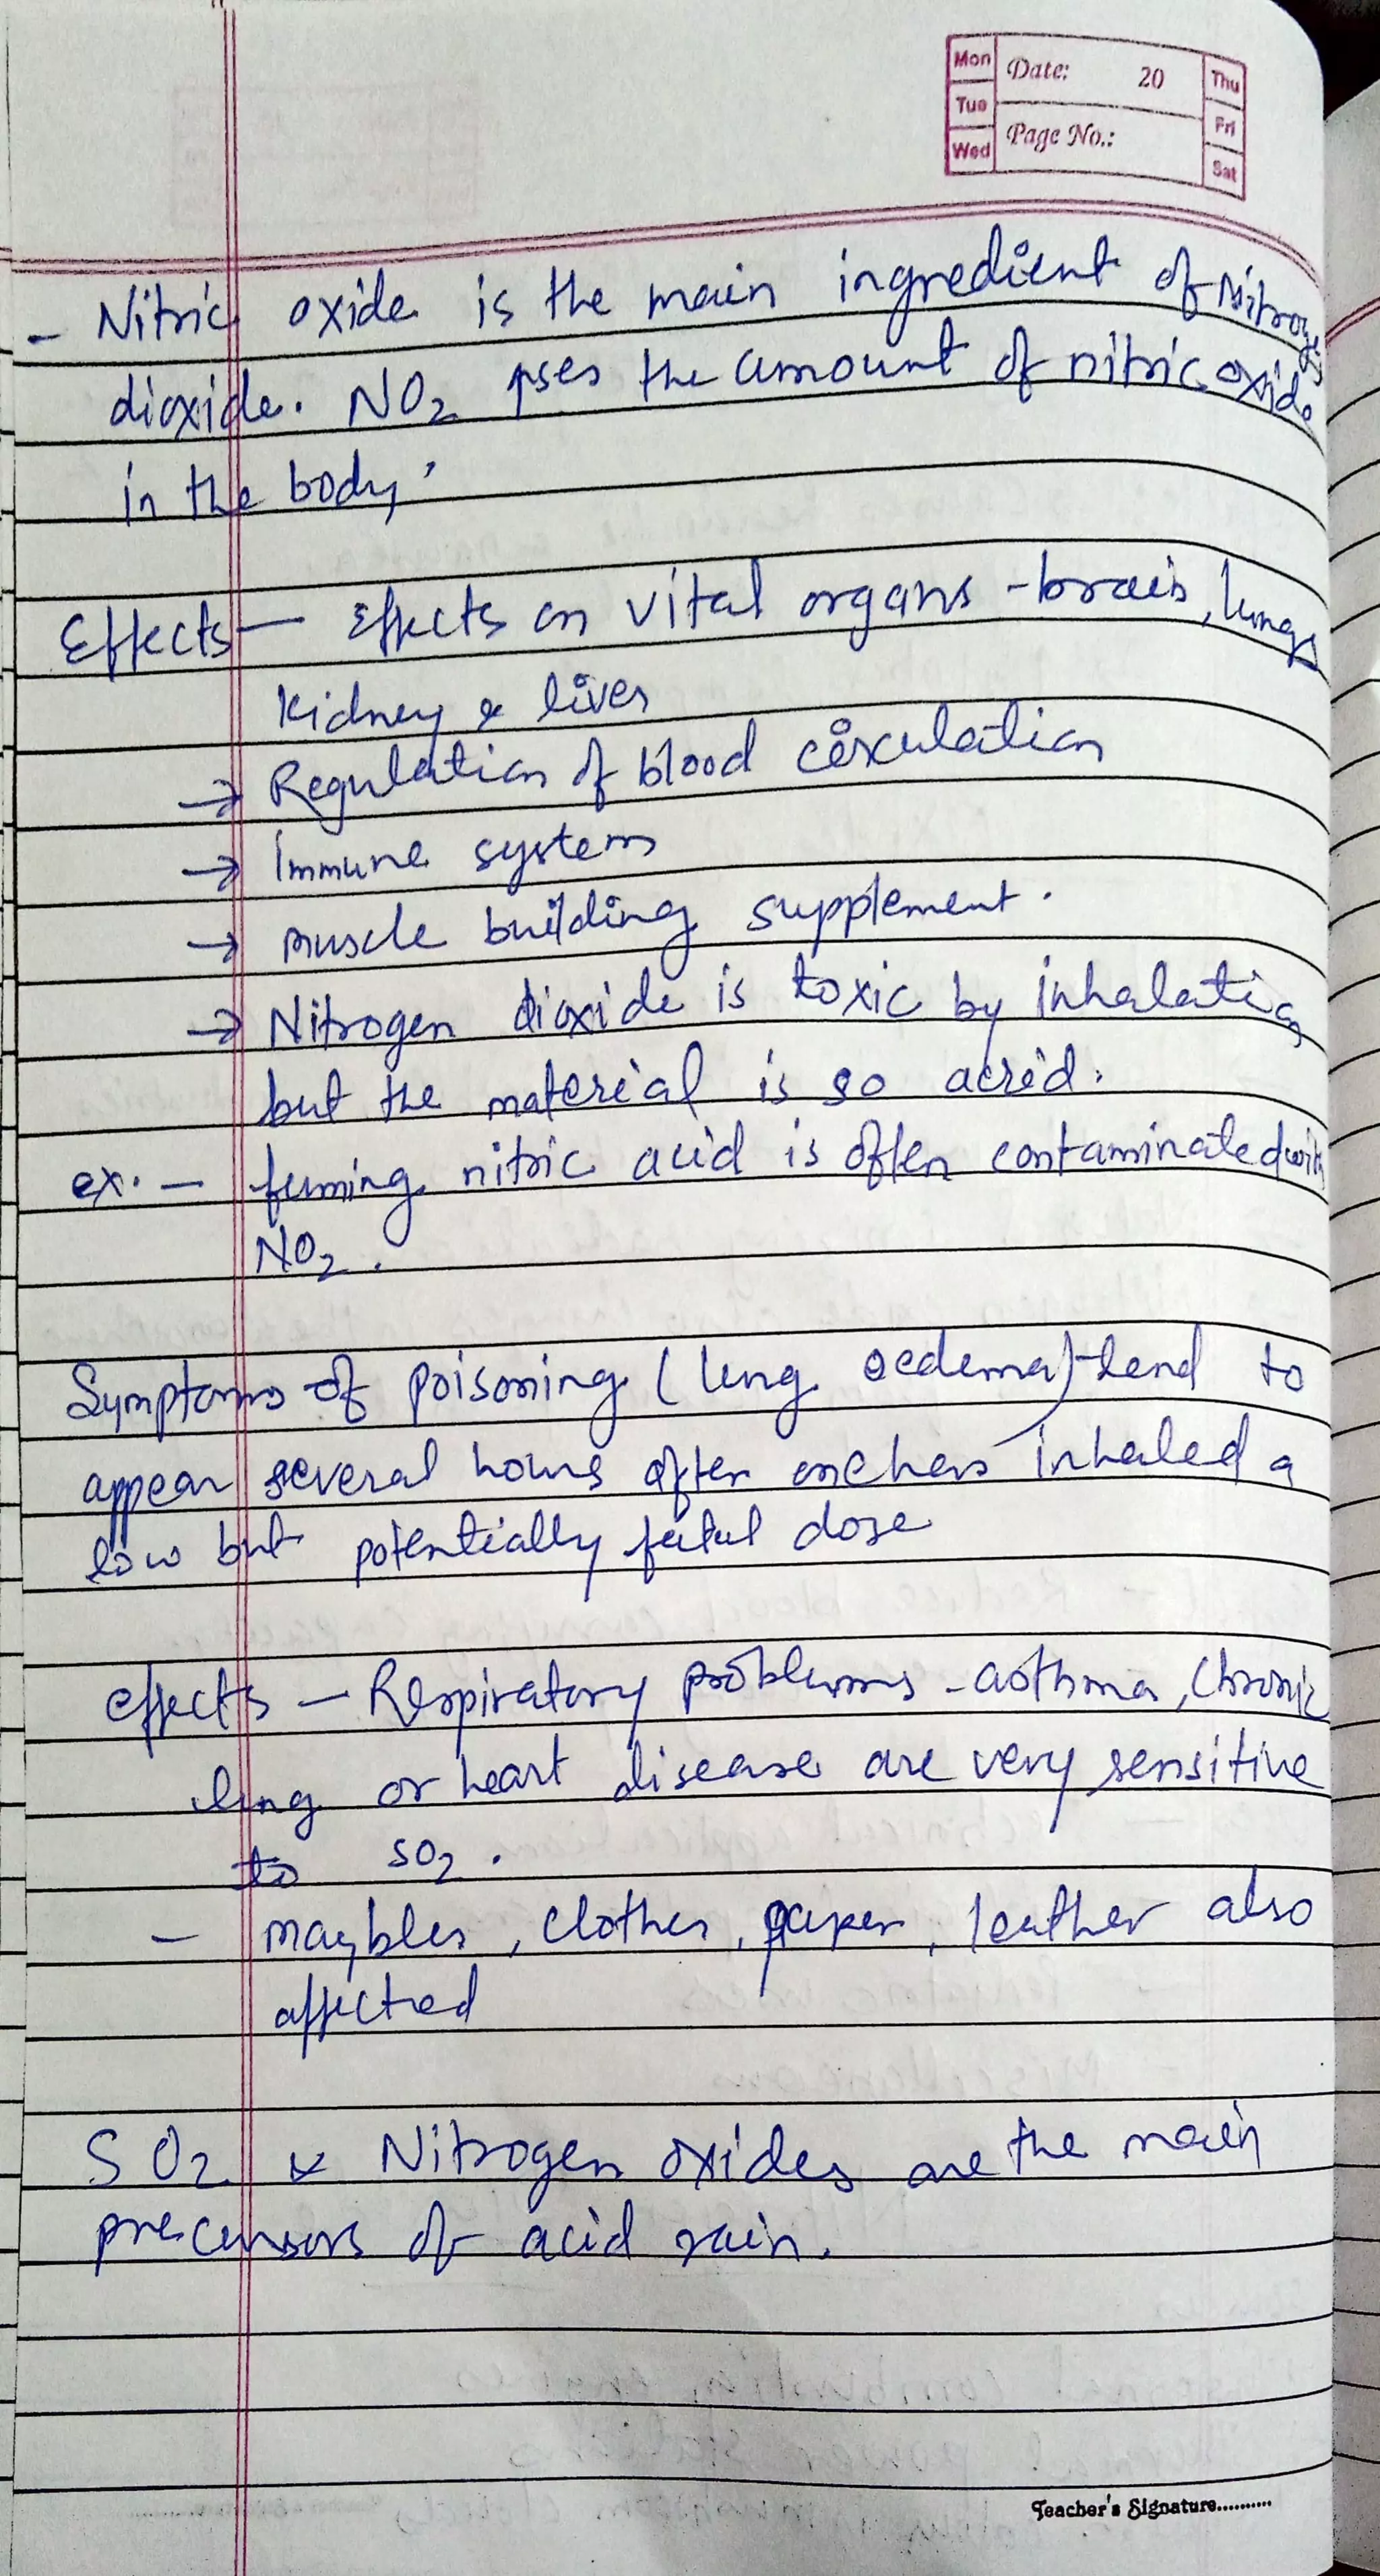 Mon Date: 20 Thu
Tue Fri
Wed Page No.: Sat
- Nitric oxide is the main ingredient of Nitrogen
dioxide. NO2 the amount of nitric oxide
in the body.
Effects - Effects on vital organs - brain, lungs
Kidney & liver
→ Regulation of blood circulation
→ Immune system
→ muscle building supplement.
→ Nitrogen dioxide is toxic by inhalation
but the material is so acrid.
ex. - fuming nitric acid is often contaminated with
NO2.
Symptoms of poisoning (lung oedema) tend to
appear several hours after one has inhaled a
low but potentially fatal dose
effects - Respiratory problems - asthma, chronic
lung or heart disease are very sensitive
to SO2.
- clothes, paper, leather also
affected
SO2 & Nitrogen oxides are the main
precursors of acid rain.
Teacher's Signature..........